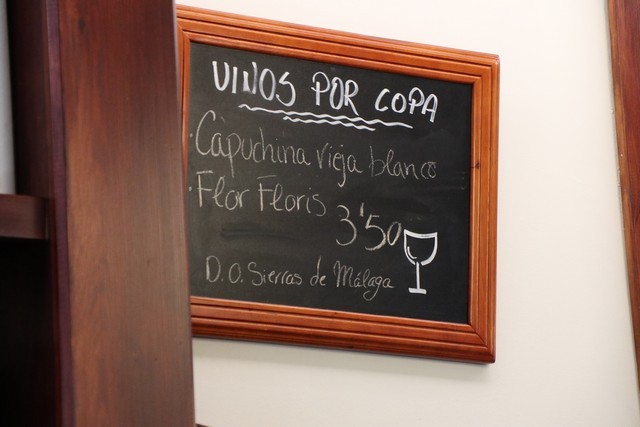 VINOS POR COPA
· Capuchina vieja blanco
· Flor Floris
3'50
D.O. Sierras de Málaga